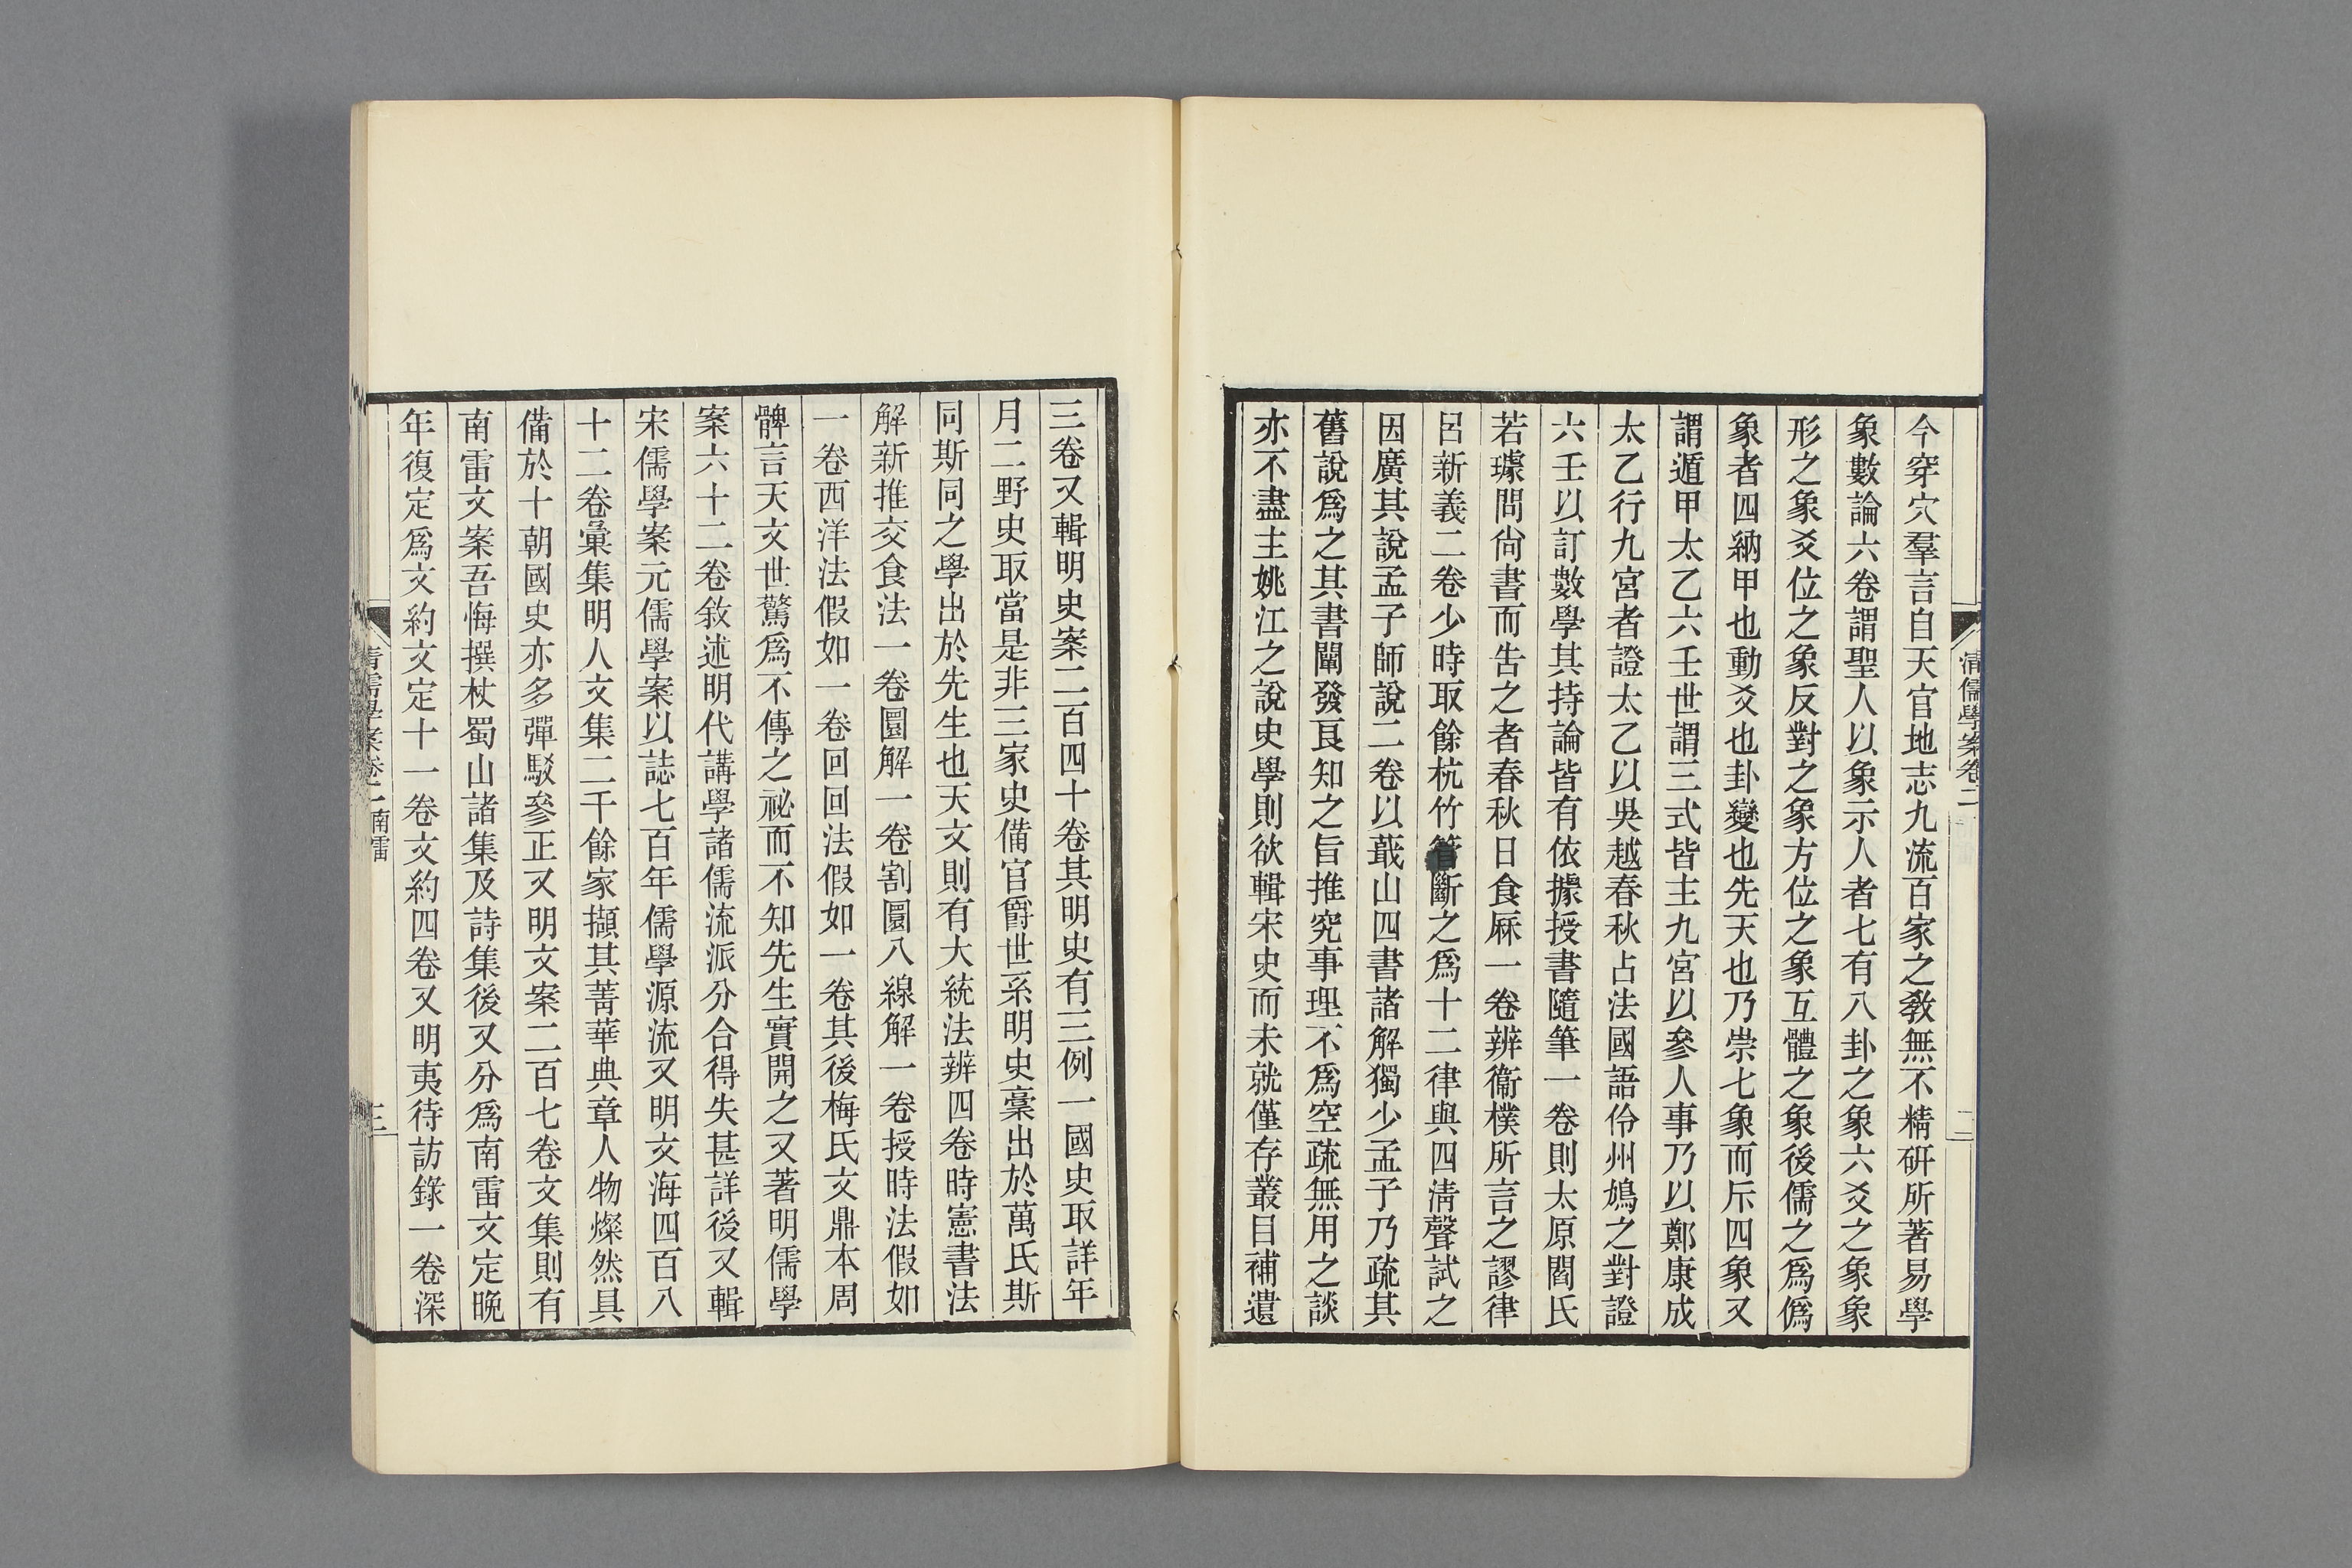 清儒學案卷二
二
今穿穴羣言自天官地志九流百家之敎無不精硏所著易學
象數論六卷謂聖人以象示人者七有八卦之象六爻之象象
形之象爻位之象反對之象方位之象互體之象後儒之爲僞
象者四納甲也動爻也卦變也先天也乃崇七象而斥四象又
謂遁甲太乙六壬世謂三式皆主九宮以參人事乃以鄭康成
太乙行九宮者證太乙以吳越春秋占法國語伶州鳩之對證
六壬以訂數學其持論皆有依據授書隨筆一卷則太原閻氏
若璩問尙書而告之者春秋日食厤一卷辨衞樸所言之謬律
呂新義二卷少時取餘杭竹管斷之爲十二律與四淸聲試之
因廣其說孟子師說二卷以蕺山四書諸解獨少孟子乃疏其
舊說爲之其書闡發良知之旨推究事理不爲空疏無用之談
亦不盡主姚江之說史學則欲輯宋史而未就僅存叢目補遺
三卷又輯明史案二百四十卷其明史有三例一國史取詳年
月二野史取當是非三家史備官爵世系明史稾出於萬氏斯
同斯同之學出於先生也天文則有大統法辨四卷時憲書法
解新推交食法一卷圜解一卷割圜八線解一卷授時法假如
一卷西洋法假如一卷回回法假如一卷其後梅氏文鼎本周
髀言天文世驚爲不傳之祕而不知先生實開之又著明儒學
案六十二卷敘述明代講學諸儒流派分合得失甚詳後又輯
宋儒學案元儒學案以誌七百年儒學源流又明文海四百八
十二卷彙集明人文集二千餘家擷其菁華典章人物燦然具
備於十朝國史亦多彈駁參正又明文案二百七卷文集則有
南雷文案吾悔撰杖蜀山諸集及詩集後又分爲南雷文定晚
年復定爲文約文定十一卷文約四卷又明夷待訪錄一卷深
清儒學案卷二 南雷
三